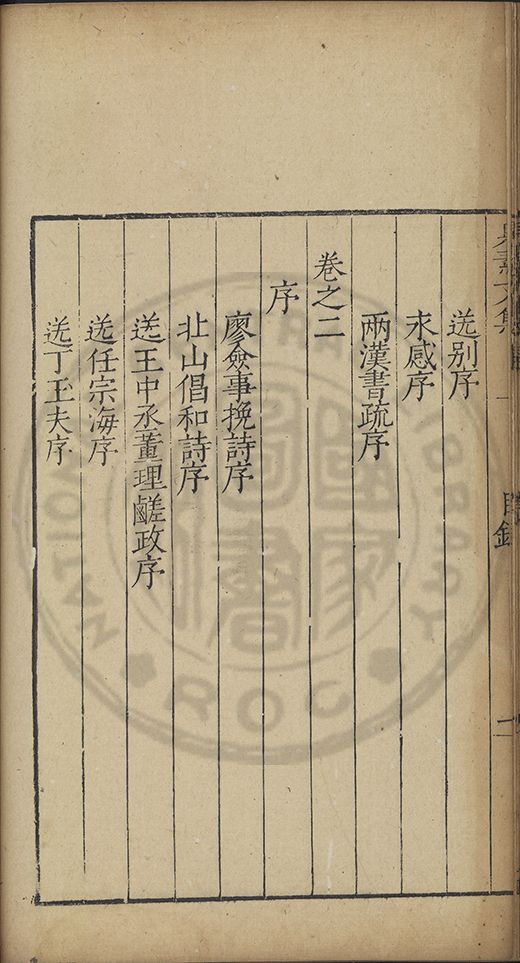 送别序
求感序
兩漢書疏序
卷之二
序
廖僉事挽詩序
北山倡和詩序
送王中丞董理鹺政序
送任宗海序
送丁玉夫序
目錄